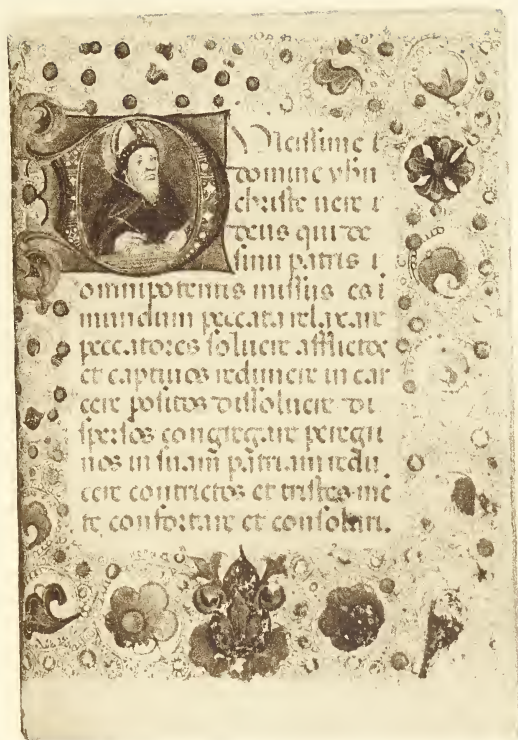 Dulcissime t
domine yhu
christe uere t
deus qui de
sinu patris t
omnipotentis missus es i
mundum peccata relaxare
peccatores soluere afflictos
et captiuos reducere in car
cere positos dissoluere di
spersos congregare peregri
nos in suam patriam redu
cere contrictos et tristes mē
te confortare et consolari.